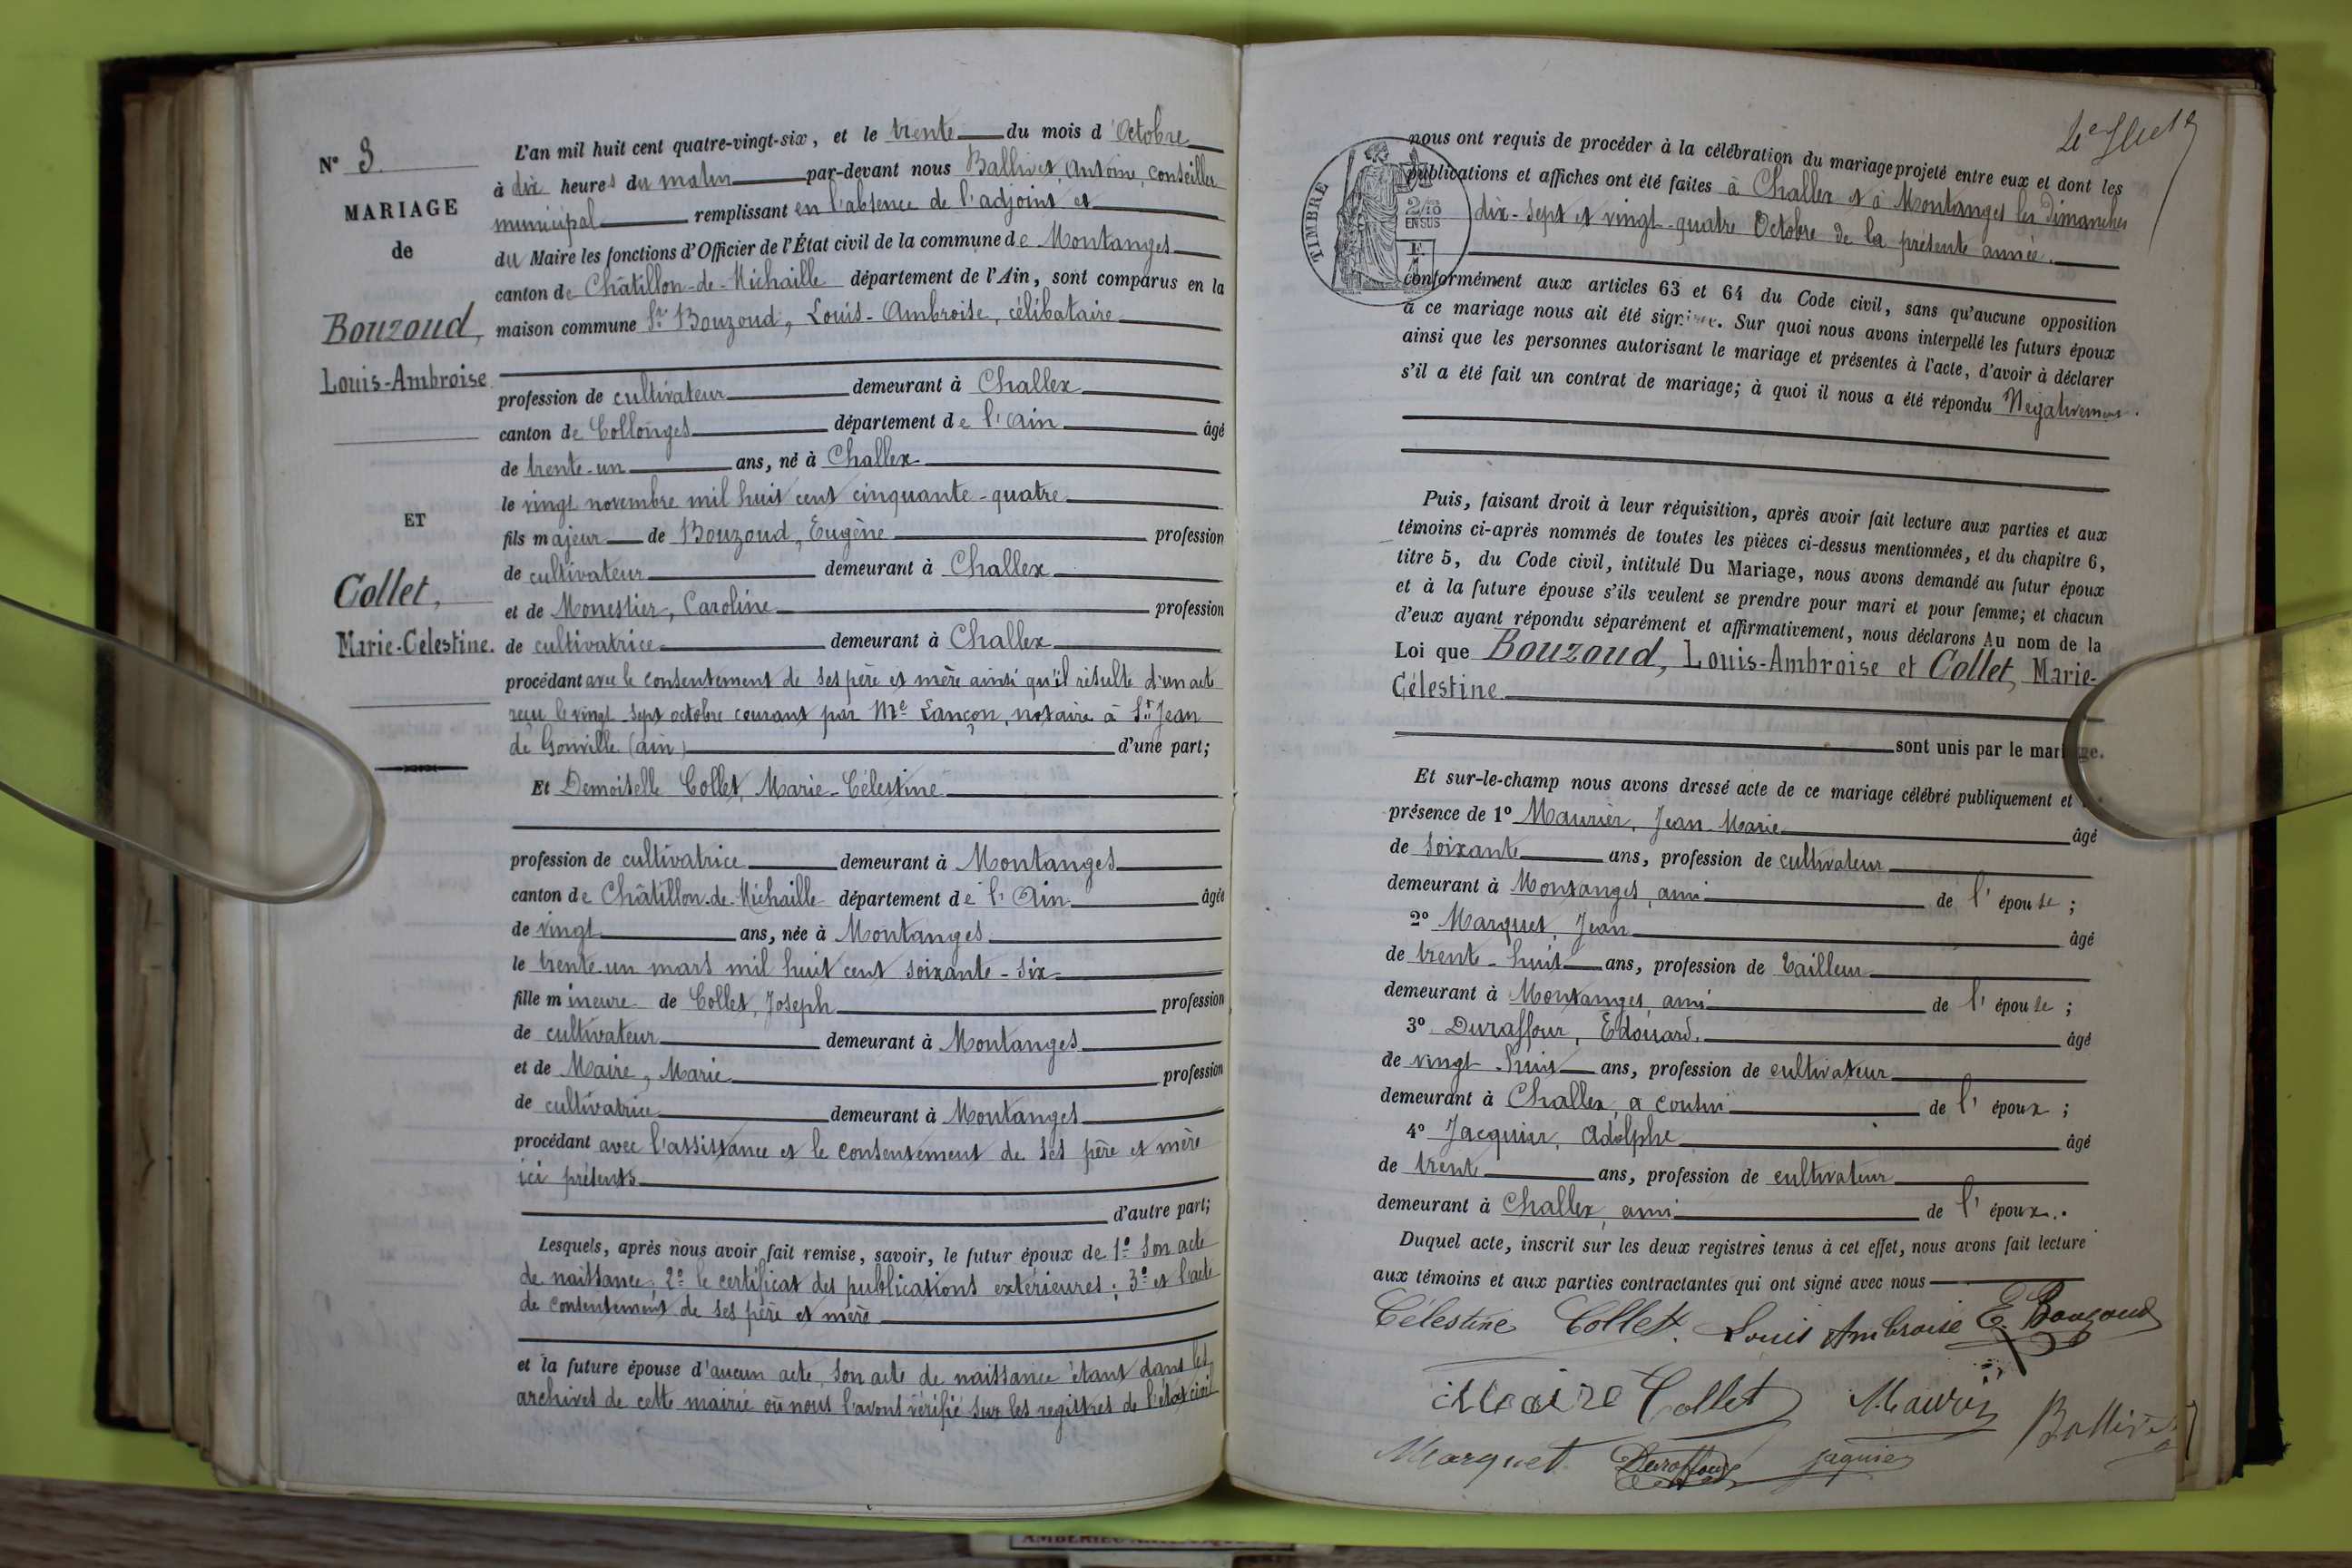 N° 3.
MARIAGE
de
Bouzoud,
Louis-Ambroise.
ET
Collet,
Marie-Célestine.
L'an mil huit cent quatre-vingt-six, et le trente du mois d'Octobre
à dix heures du matin par-devant nous Ballivet, Antoine, conseiller
municipal remplissant en l'absence de l'adjoint et
du Maire les fonctions d'Officier de l'État civil de la commune de Montanges
canton de Châtillon-de-Michaille département de l'Ain, sont comparus en la
maison commune Sr. Bouzoud, Louis-Ambroise, célibataire
profession de cultivateur demeurant à Challex
canton de Collonges département de l'Ain âgé
de trente-un ans, né à Challex
le vingt novembre mil huit cent cinquante-quatre
fils majeur de Bouzoud, Eugène profession
de cultivateur demeurant à Challex
et de Monestier, Caroline profession
de cultivatrice demeurant à Challex
procédant avec le consentement de ses père et mère ainsi qu'il résulte d'un acte
reçu le vingt-sept octobre courant par Me Lançon, notaire à St Jean
de Gonville (ain) d'une part;
Et Demoiselle Collet, Marie-Célestine
profession de cultivatrice demeurant à Montanges
canton de Châtillon-de-Michaille département de l'Ain âgée
de vingt ans, née à Montanges
le trente-un mars mil huit cent soixante-six
fille mineure de Collet, Joseph profession
de cultivateur demeurant à Montanges
et de Maire, Marie profession
de cultivatrice demeurant à Montanges
procédant avec l'assistance et le consentement de ses père et mère
ici présents
d'autre part;
Lesquels, après nous avoir fait remise, savoir, le futur époux de 1° son acte
de naissance; 2° le certificat des publications extérieures; 3° et l'acte
de consentement de ses père et mère
et la future épouse d'aucun acte, son acte de naissance étant dans les
archives de cette mairie où nous l'avons vérifié sur les registres de l'état civil
nous ont requis de procéder à la célébration du mariage projeté entre eux et dont les
publications et affiches ont été faites à Challex et à Montanges les Dimanches
dix-sept et vingt-quatre Octobre de la présente année.
TIMBRE
2/10
EN SUS
conformément aux articles 63 et 64 du Code civil, sans qu'aucune opposition
à ce mariage nous ait été signifiée. Sur quoi nous avons interpellé les futurs époux
ainsi que les personnes autorisant le mariage et présentes à l'acte, d'avoir à déclarer
s'il a été fait un contrat de mariage; à quoi il nous a été répondu Négativement.
Puis, faisant droit à leur réquisition, après avoir fait lecture aux parties et aux
témoins ci-après nommés de toutes les pièces ci-dessus mentionnées, et du chapitre 6,
titre 5, du Code civil, intitulé Du Mariage, nous avons demandé au futur époux
et à la future épouse s'ils veulent se prendre pour mari et pour femme; et chacun
d'eux ayant répondu séparément et affirmativement, nous déclarons Au nom de la
Loi que Bouzoud, Louis-Ambroise et Collet, Marie-
Célestine
sont unis par le mariage.
Et sur-le-champ nous avons dressé acte de ce mariage célébré publiquement et
présence de 1° Maurier, Jean Marie âgé
de soixante ans, profession de cultivateur
demeurant à Montanges, ami de l'épouse;
2° Marquet, Jean âgé
de trente-huit ans, profession de tailleur
demeurant à Montanges, ami de l'épouse;
3° Duraffour, Edouard. âgé
de vingt-huit ans, profession de cultivateur
demeurant à Challex, a cousin de l'époux;
4° Jacquier, Adolphe âgé
de trente ans, profession de cultivateur
demeurant à Challex, ami de l'époux.
Duquel acte, inscrit sur les deux registres tenus à cet effet, nous avons fait lecture
aux témoins et aux parties contractantes qui ont signé avec nous
Célestine Collet. Louis Ambroise E. Bouzoud
Maire Collet Maurier
Ballivet
Marquet Duraffour Jaquier